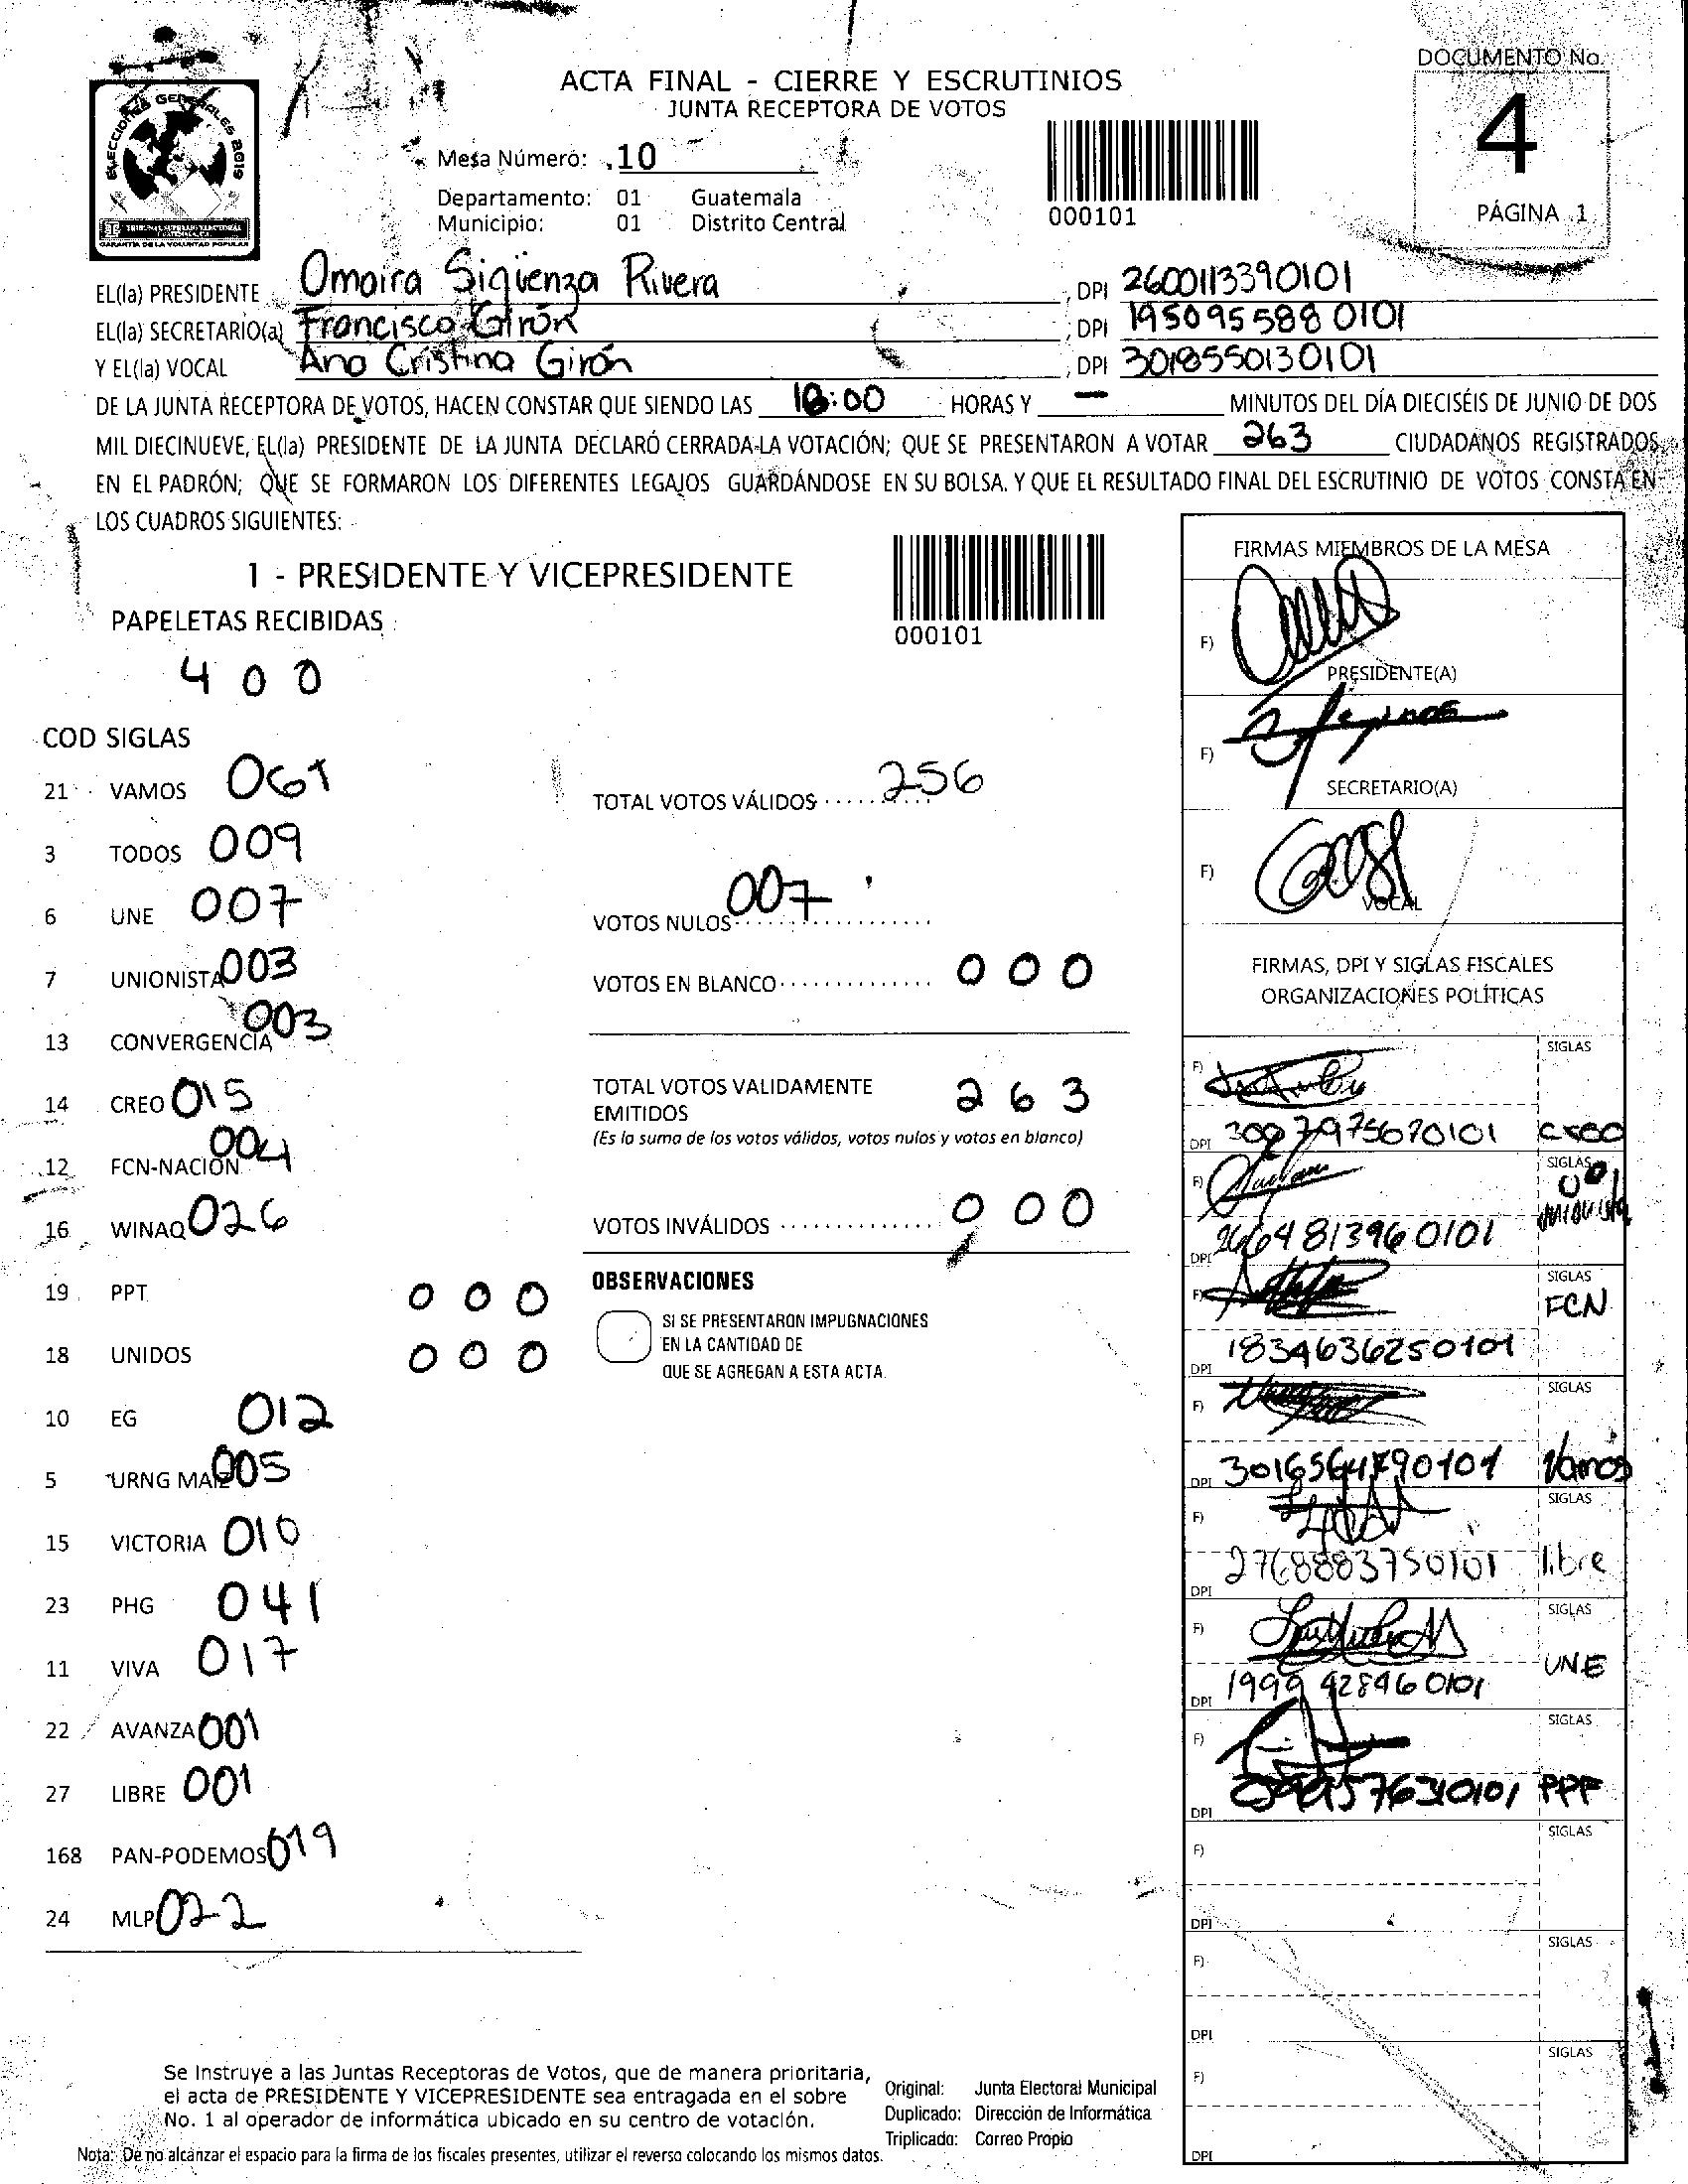 DOCUMENTO No.
4
PÁGINA 1
ELECCIONES GENERALES 2019
TRIBUNAL SUPREMO ELECTORAL
GUATEMALA, C.A.
GARANTÍA DE LA VOLUNTAD POPULAR
ACTA FINAL - CIERRE Y ESCRUTINIOS
JUNTA RECEPTORA DE VOTOS
Mesa Número: 10
Departamento: 01 Guatemala
Municipio: 01 Distrito Central
000101
EL(la) PRESIDENTE Omaira Sigüenza Rivera, DPI 2600113390101
EL(la) SECRETARIO(a) Francisco Girón, DPI 1950955880101
Y EL(la) VOCAL Ana Cristina Girón, DPI 3018550130101
DE LA JUNTA RECEPTORA DE VOTOS, HACEN CONSTAR QUE SIENDO LAS 18:00 HORAS Y — MINUTOS DEL DÍA DIECISÉIS DE JUNIO DE DOS
MIL DIECINUEVE, EL(la) PRESIDENTE DE LA JUNTA DECLARÓ CERRADA LA VOTACIÓN; QUE SE PRESENTARON A VOTAR 263 CIUDADANOS REGISTRADOS
EN EL PADRÓN; QUE SE FORMARON LOS DIFERENTES LEGAJOS GUARDÁNDOSE EN SU BOLSA. Y QUE EL RESULTADO FINAL DEL ESCRUTINIO DE VOTOS CONSTA EN
LOS CUADROS SIGUIENTES:
1 - PRESIDENTE Y VICEPRESIDENTE
000101
PAPELETAS RECIBIDAS
400
COD SIGLAS
21 VAMOS 061
3 TODOS 009
6 UNE 007
7 UNIONISTA 003
13 CONVERGENCIA 003
14 CREO 015
12 FCN-NACIÓN 004
16 WINAQ 026
19 PPT 0 0 0
18 UNIDOS 0 0 0
10 EG 012
5 URNG MAIZ 005
15 VICTORIA 010
23 PHG 041
11 VIVA 017
22 AVANZA 001
27 LIBRE 001
168 PAN-PODEMOS 019
24 MLP 022
TOTAL VOTOS VÁLIDOS 256
VOTOS NULOS 007
VOTOS EN BLANCO 0 0 0
TOTAL VOTOS VALIDAMENTE
EMITIDOS 2 6 3
(Es la suma de los votos válidos, votos nulos y votos en blanco)
VOTOS INVÁLIDOS 0 0 0
OBSERVACIONES
SI SE PRESENTARON IMPUGNACIONES
EN LA CANTIDAD DE
QUE SE AGREGAN A ESTA ACTA.
FIRMAS MIEMBROS DE LA MESA
F)
PRESIDENTE(A)
F)
SECRETARIO(A)
F)
VOCAL
FIRMAS, DPI Y SIGLAS FISCALES
ORGANIZACIONES POLÍTICAS
F) SIGLAS
DPI creo
F) SIGLAS
DPI 2664813960101 unionista
F) SIGLAS
FCN
DPI 1834636250101
F) SIGLAS
DPI Vamos
F) SIGLAS
DPI 2768883750101 libre
F) SIGLAS
UNE
DPI 1999428460101
F) SIGLAS
DPI
F) SIGLAS
DPI
F) SIGLAS
DPI
F) SIGLAS
DPI
Se Instruye a las Juntas Receptoras de Votos, que de manera prioritaria,
el acta de PRESIDENTE Y VICEPRESIDENTE sea entragada en el sobre
No. 1 al operador de informática ubicado en su centro de votación.
Original: Junta Electoral Municipal
Duplicado: Dirección de Informática
Triplicado: Correo Propio
Nota: De no alcanzar el espacio para la firma de los fiscales presentes, utilizar el reverso colocando los mismos datos.